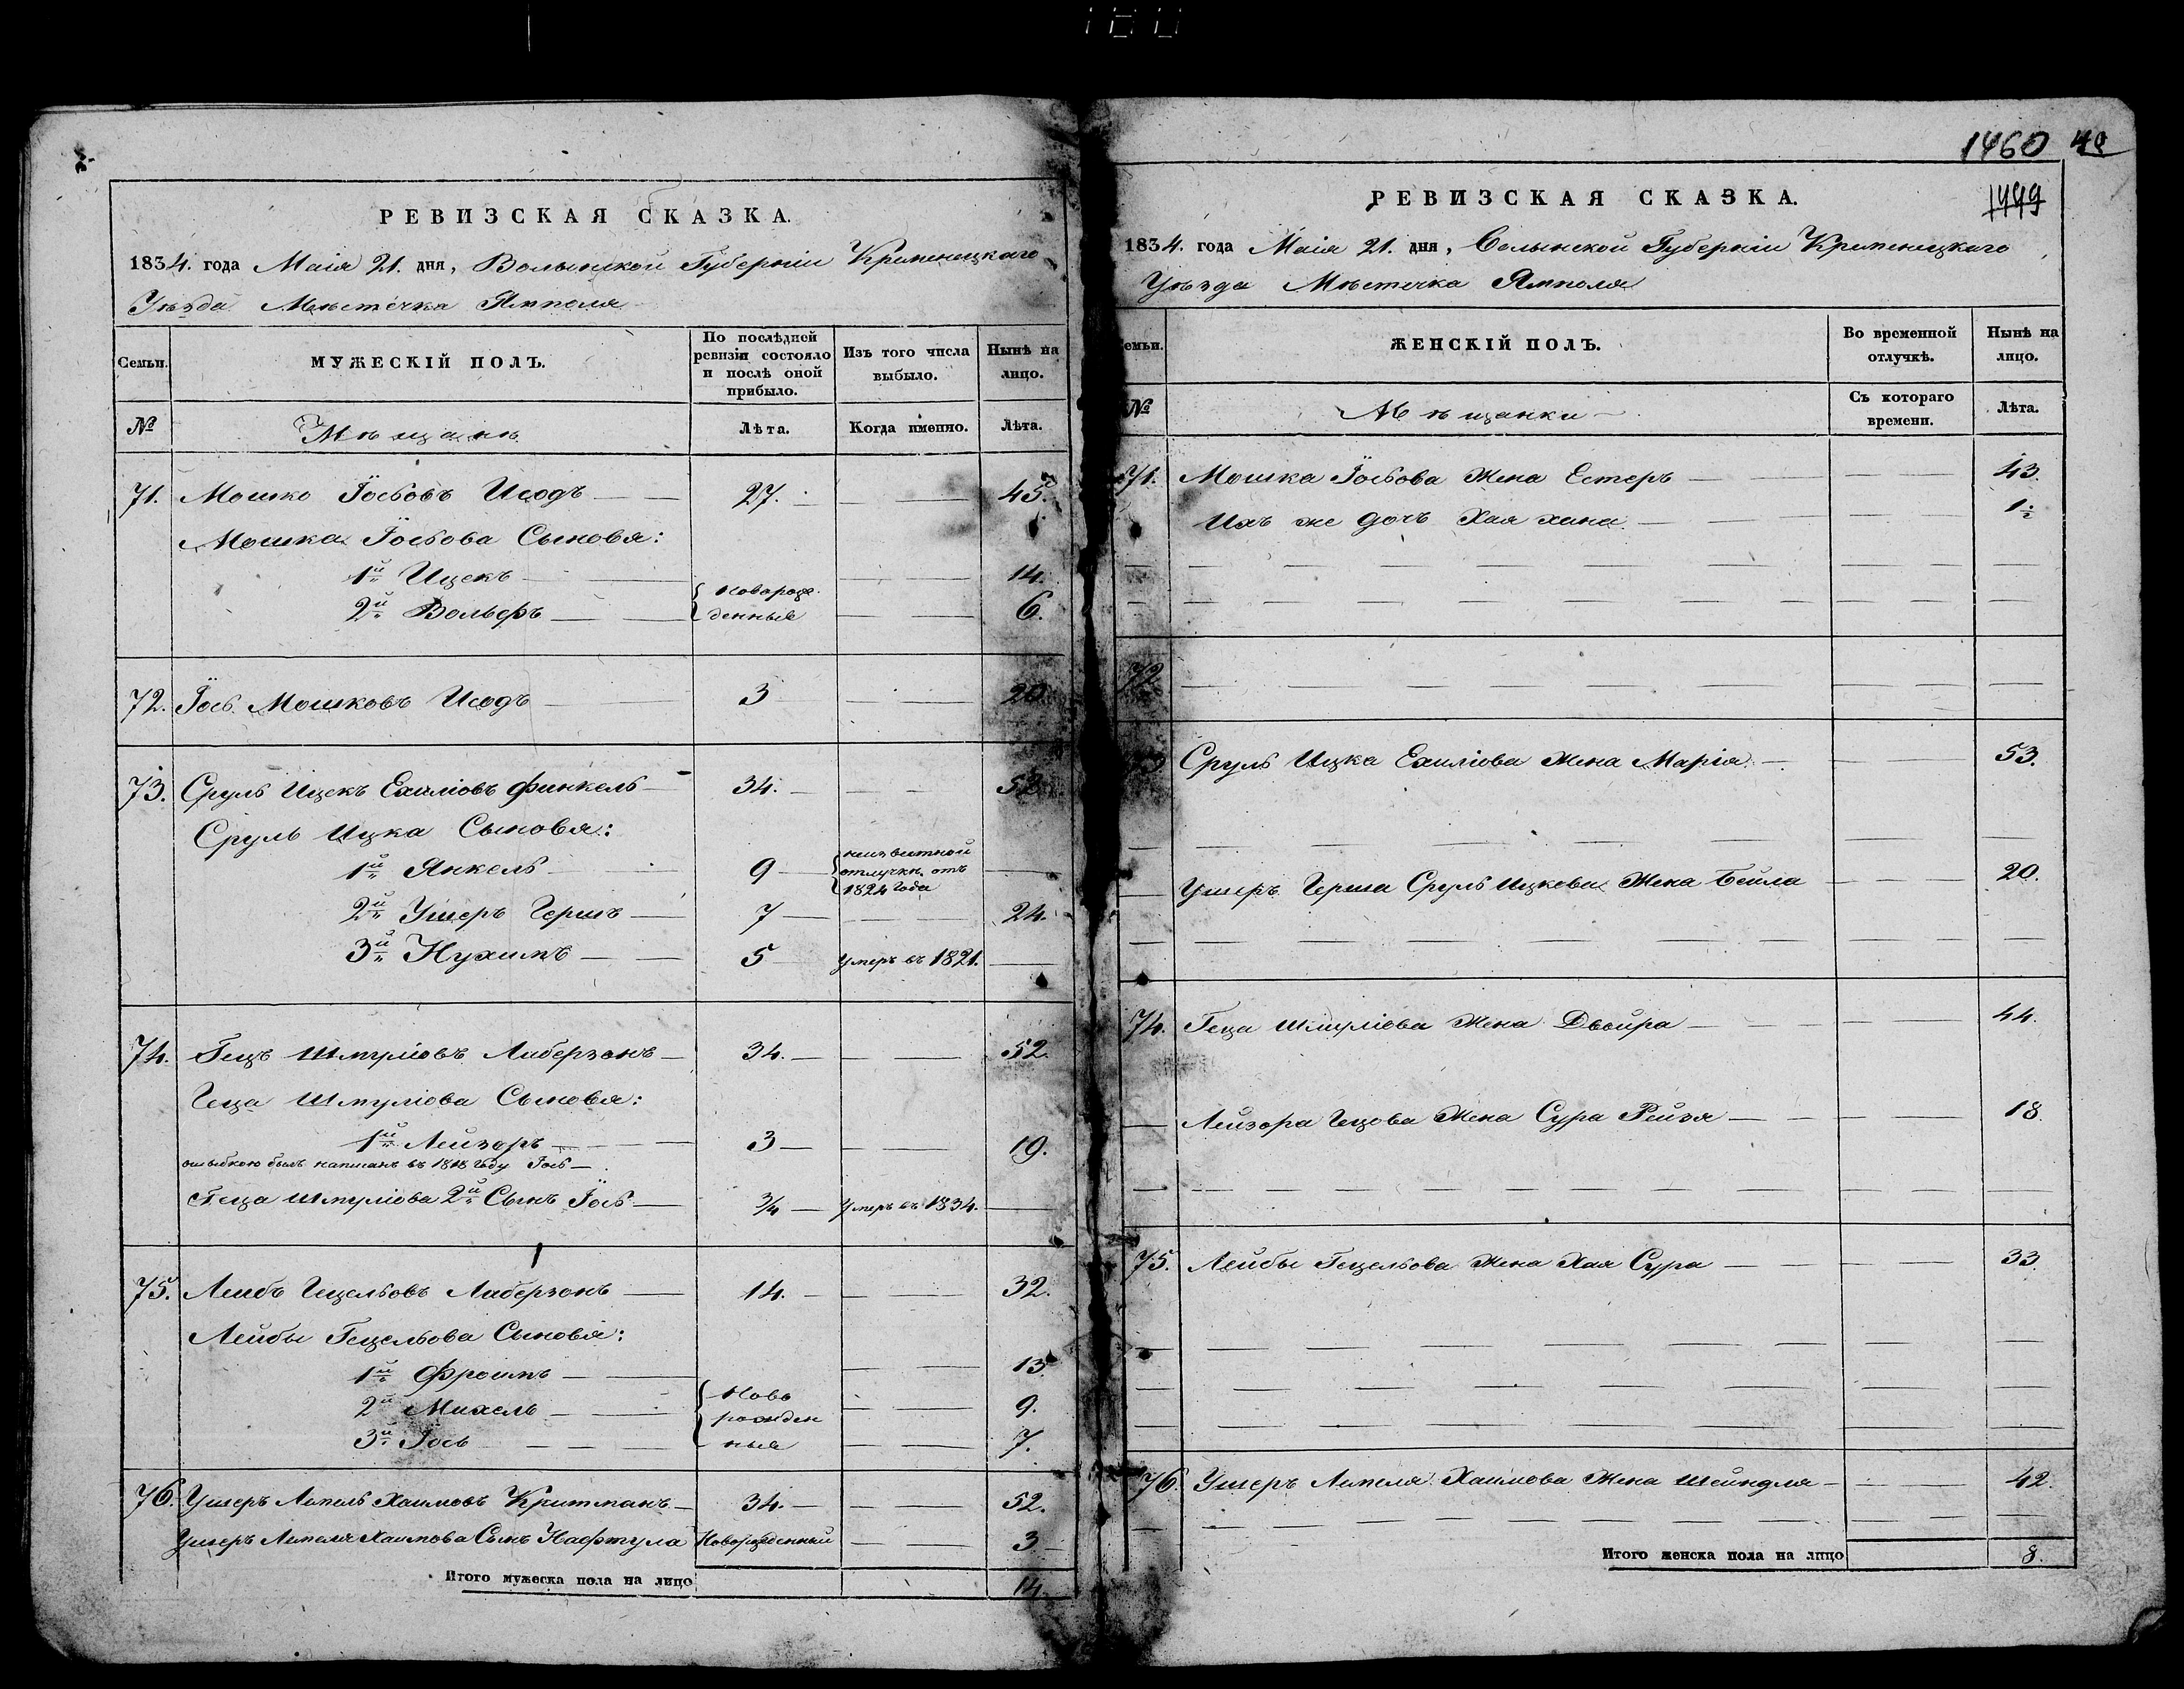 РЕВИЗСКАЯ СКАЗКА.
1834. года Маія 21. дня, Волынской Губерніи Кременецкаго
Уѣзда Мѣстечка Ямполя
Семьи. МУЖЕСКІЙ ПОЛЪ. По послѣдней ревизіи состояло и послѣ оной прибыло. Изъ того числа выбыло. Нынѣ на лицо.
№ Мѣщанъ Лѣта. Когда именно. Лѣта.
71. Мошко Іосьовъ 27. 45.
Мошка Іосьова Сыновя:
1й Ицекъ 14.
2й Вольфъ 6.
{ Новорож
денные
72. Іось Мошковъ 3 20
73. Сруль Ицекъ Ехиліовъ Финкель 34. 52
Сруль Ицка Сыновя:
1й Янкель 9 неизвѣстной отлучкѣ отъ 1824 года
2й Ушеръ Гершъ 7 24.
3й Нухимъ 5 умеръ въ 1821.
74. Гецъ Шмуліовъ Либерзонъ 34. 52.
Геца Шмуліова Сыновя:
1й Лейзоръ 3 19.
ошыбкою былъ написанъ въ 1818 году Іось
Геца Шмуліова 2й Сынъ Іось 3/4 умеръ въ 1834.
75. Лейбъ Гецельовъ Либерзонъ 14. 32.
Лейбы Гецельова Сыновя:
1й Фроимъ 13
2й Михель 9.
3й Іось 7.
{ Ново
рожден
ные
76. Ушеръ Липель Хаимовъ Критманъ 34. 52.
Ушеръ Липеля Хаимова Сынъ Нафтула Новорожденный 3
Итого мужеска пола на лицо 14.
1460 48
1449
РЕВИЗСКАЯ СКАЗКА.
1834. года Маія 21. дня, Волынской Губерніи Кременецкаго
Уѣзда Мѣстечка Ямполя
Семьи. ЖЕНСКІЙ ПОЛЪ. Во временной отлучкѣ. Нынѣ на лицо.
№ Мѣщанки Съ котораго времени. Лѣта.
71. Мошка Іосьова Жена Естеръ 43.
Ихъ же дочъ Хая хана 1½
72
73 Сруль Ицка Ехиліова Жена Марія 53.
Ушеръ Герша Сруль Ицкова Жена Бейла 20.
74. Геца Шмуліова Жена Двойра 44.
Лейзора Гецова Жена Сура Рейзя 18.
75. Лейбы Гецельова Жена Хая Сура 33
76. Ушеръ Липеля Хаимова Жена Шейндля 42.
Итого женска пола на лицо 8.